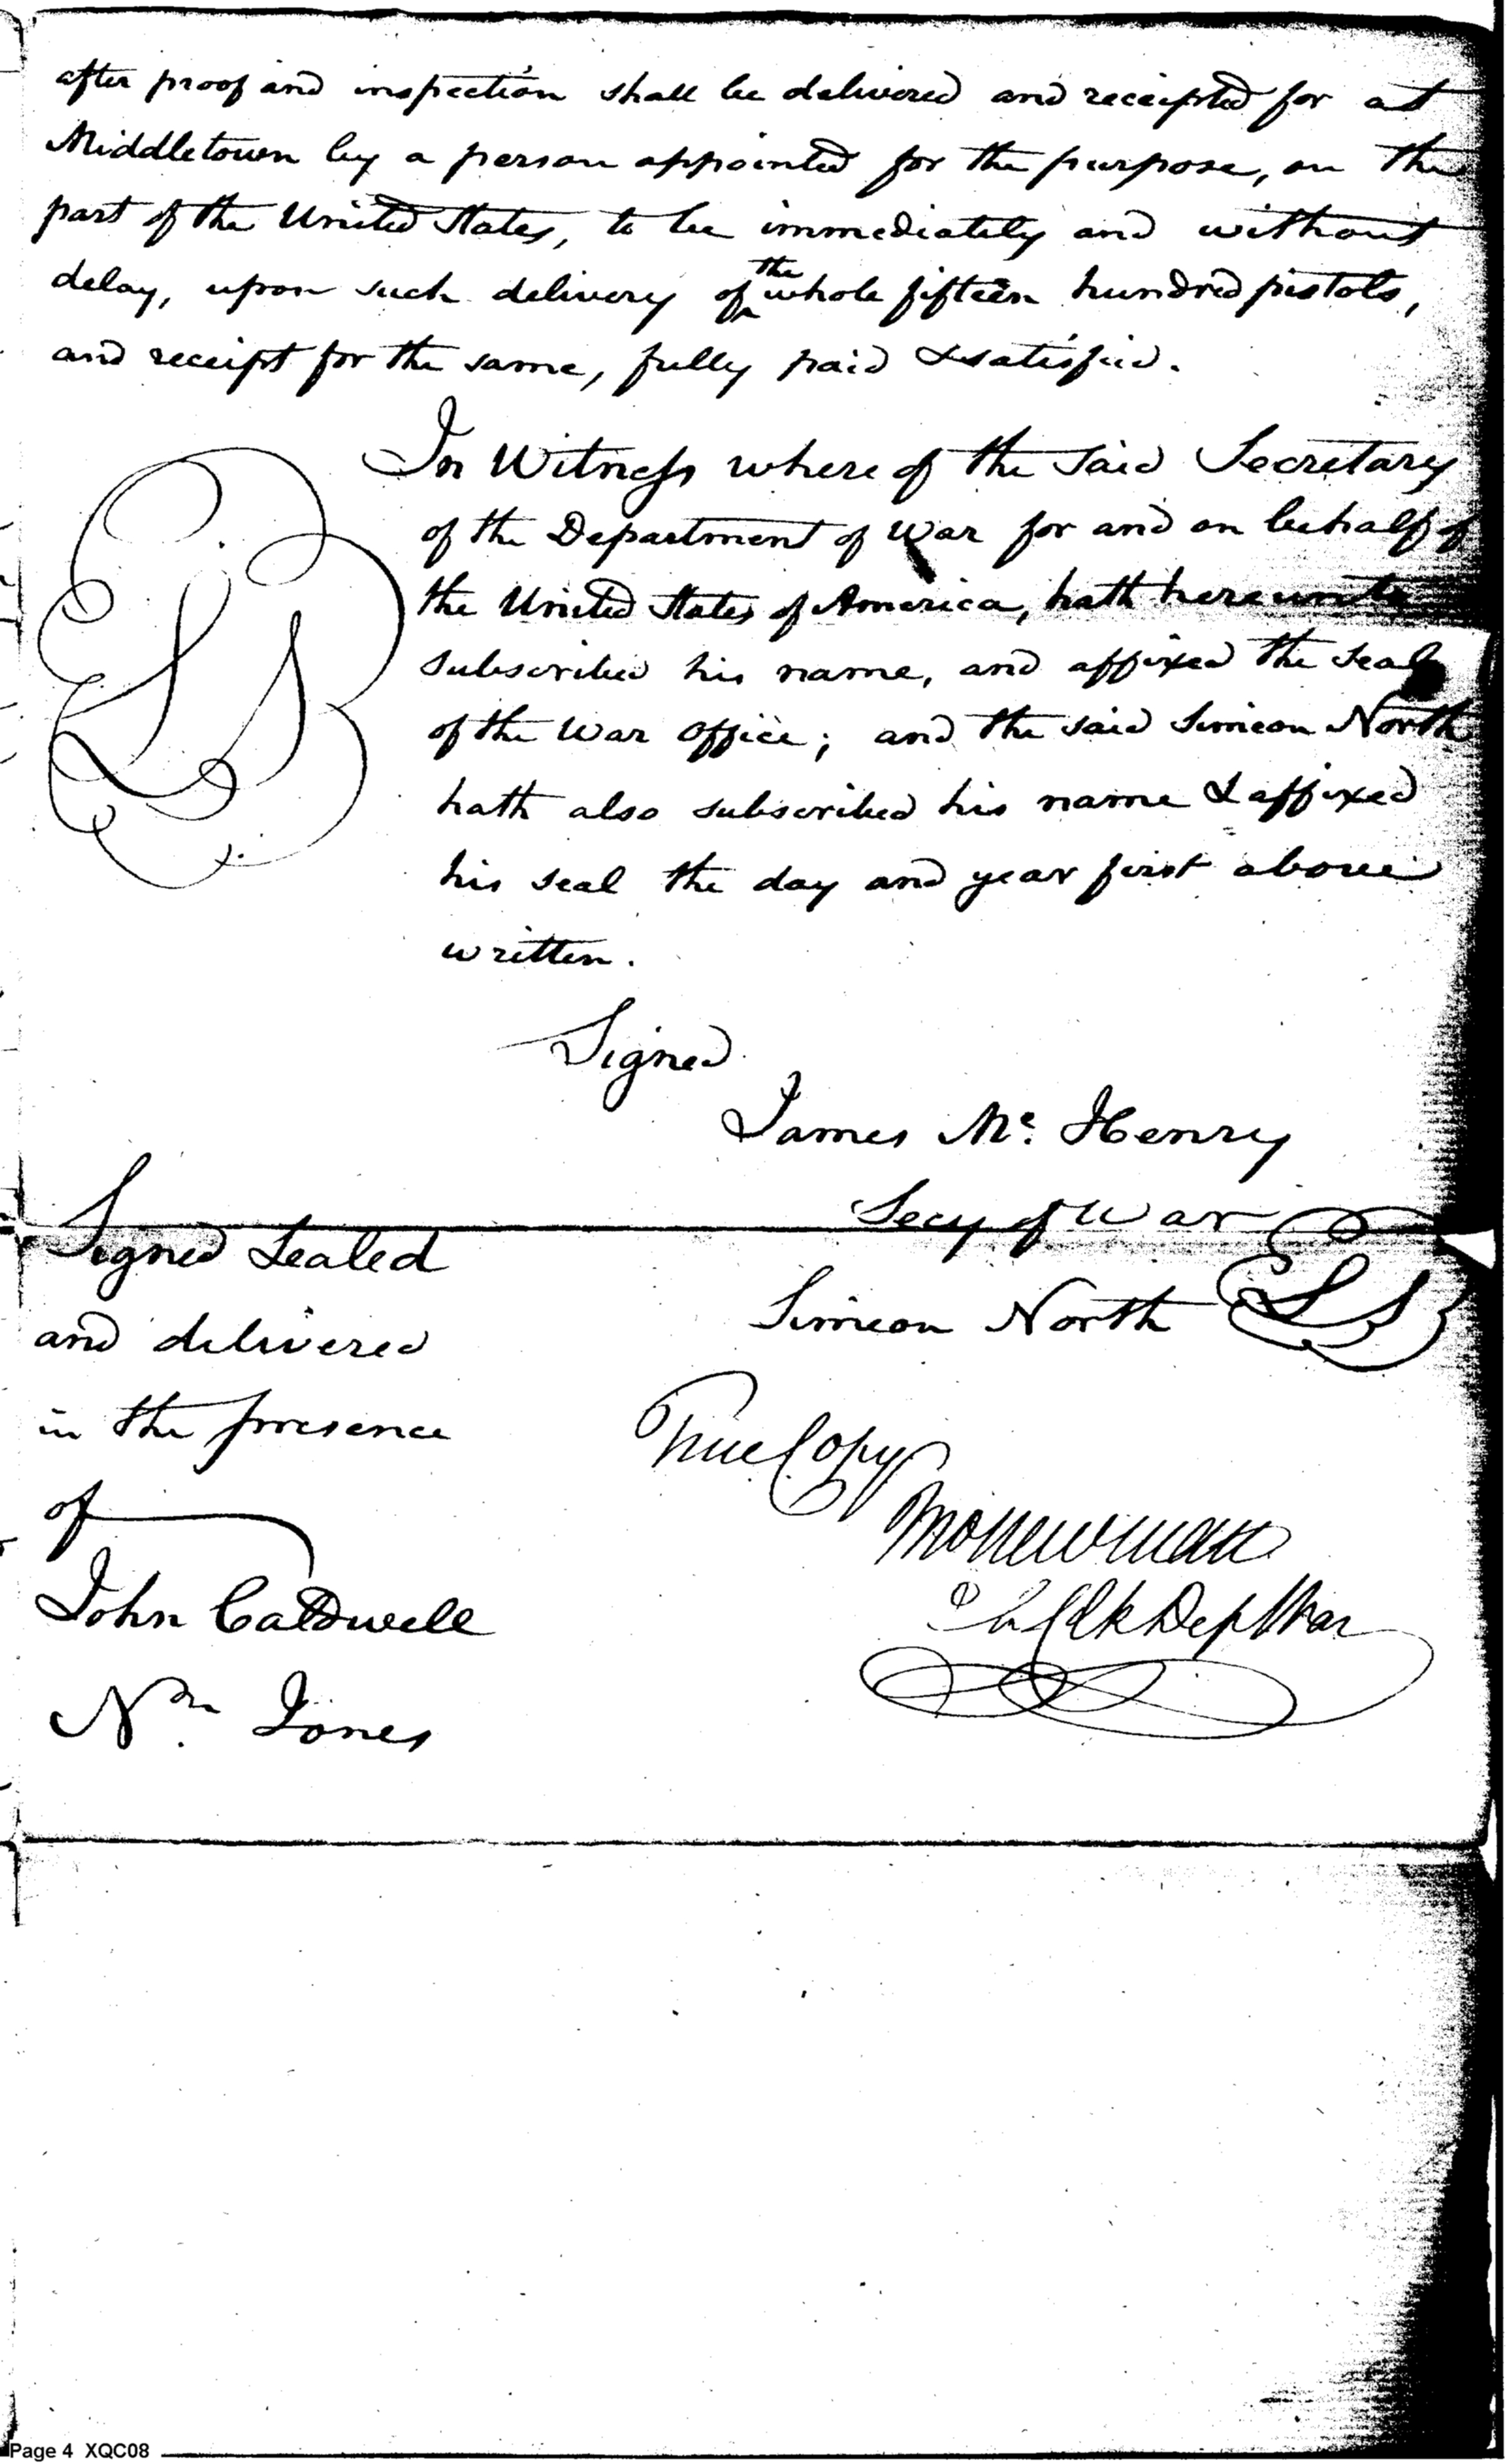 after proof and inspection shall be delivered and receipted for at
Middletown by a person appointed for the purpose, on the
part of the United States, to be immediately and without
delay, upon such delivery of the whole fifteen hundred pistols,
and receipt for the same, fully paid & satisfied.
In Witness where of the said Secretary
of the Department of War for and on behalf of
the United States of America, hath hereunto
subscribed his name, and affixed the seal
of the War Office; and the said Simeon North
hath also subscribed his name & affixed
his seal the day and year first above
written.
LS
Signed
James Mc. Henry
Secy of War
Simeon North LS
Signed Sealed
and delivered
in the presence
of
John Caldwell
Nn. Jones
True Copy
Tho Newman
Ch Clk Dep War
Page 4 XQC08